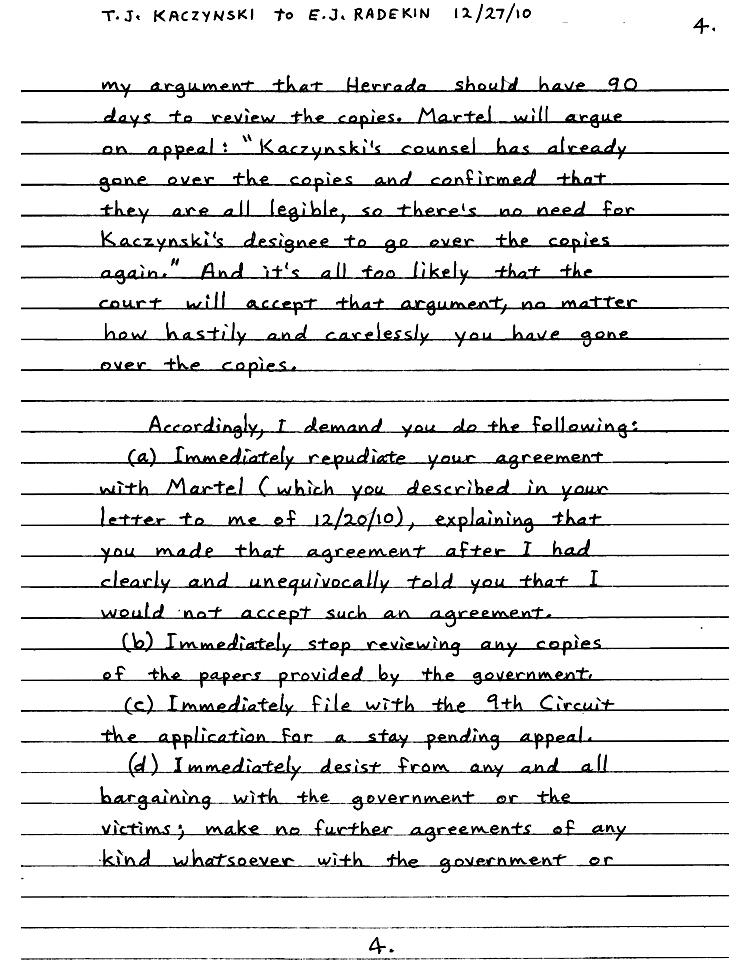 T.J. KACZYNSKI to E.J. RADEKIN 12/27/10
4.
my argument that Herrada should have 90
days to review the copies. Martel will argue
on appeal: "Kaczynski's counsel has already
gone over the copies and confirmed that
they are all legible, so there's no need for
Kaczynski's designee to go over the copies
again." And it's all too likely that the
court will accept that argument, no matter
how hastily and carelessly you have gone
over the copies.
Accordingly, I demand you do the following:
(a) Immediately repudiate your agreement
with Martel (which you described in your
letter to me of 12/20/10), explaining that
you made that agreement after I had
clearly and unequivocally told you that I
would not accept such an agreement.
(b) Immediately stop reviewing any copies
of the papers provided by the government.
(c) Immediately file with the 9th Circuit
the application for a stay pending appeal.
(d) Immediately desist from any and all
bargaining with the government or the
victims; make no further agreements of any
kind whatsoever with the government or
4.